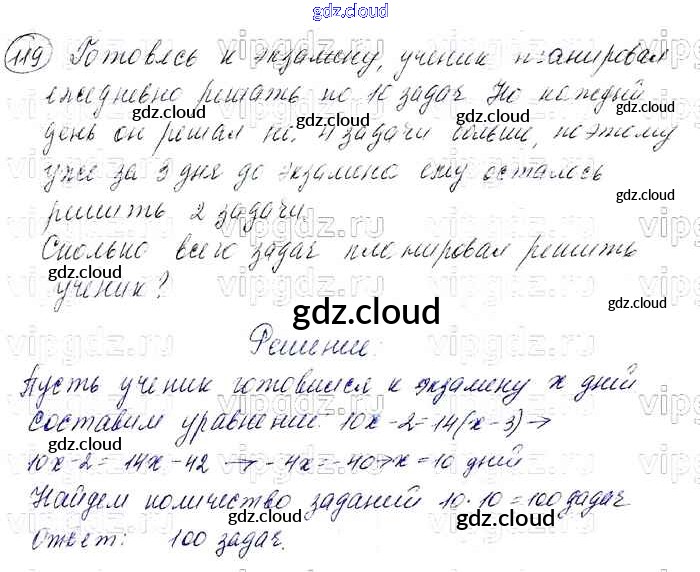 gdz.cloud
119 Готовясь к экзамену, ученик планировал
ежедневно решать по 10 задач. Но каждый
день он решал на 4 задачи больше, поэтому
уже за 3 дня до экзамена ему осталось
решить 2 задачи.
Сколько всего задач планировал решить
ученик?
Решение:
Пусть ученик готовился к экзамену x дней
составим уравнение: 10x-2=14(x-3)→
10x-2=14x-42 →-4x=-40→x=10 дней
Найдем количество заданий 10·10=100 задач
Ответ: 100 задач.